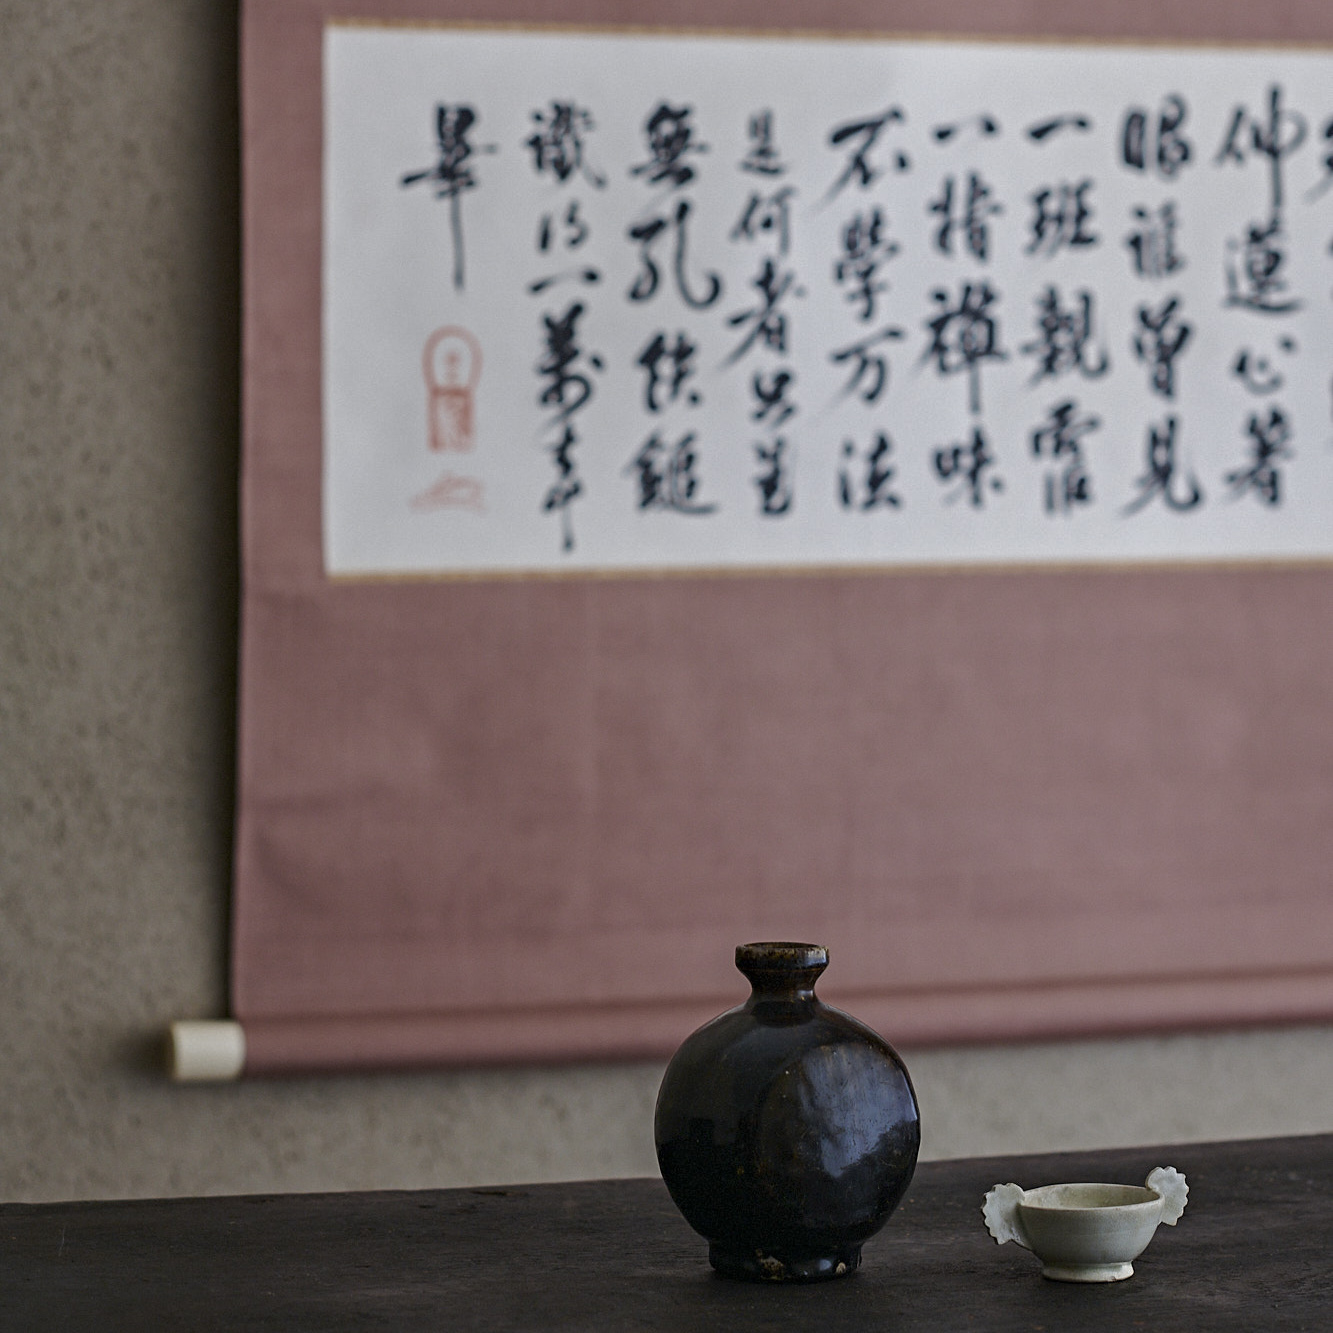 仲邅心著
眼誰曾見
一班親霑
一指禪味
不學万法
是何者只這
無孔鉄鎚
識得一萬事
畢